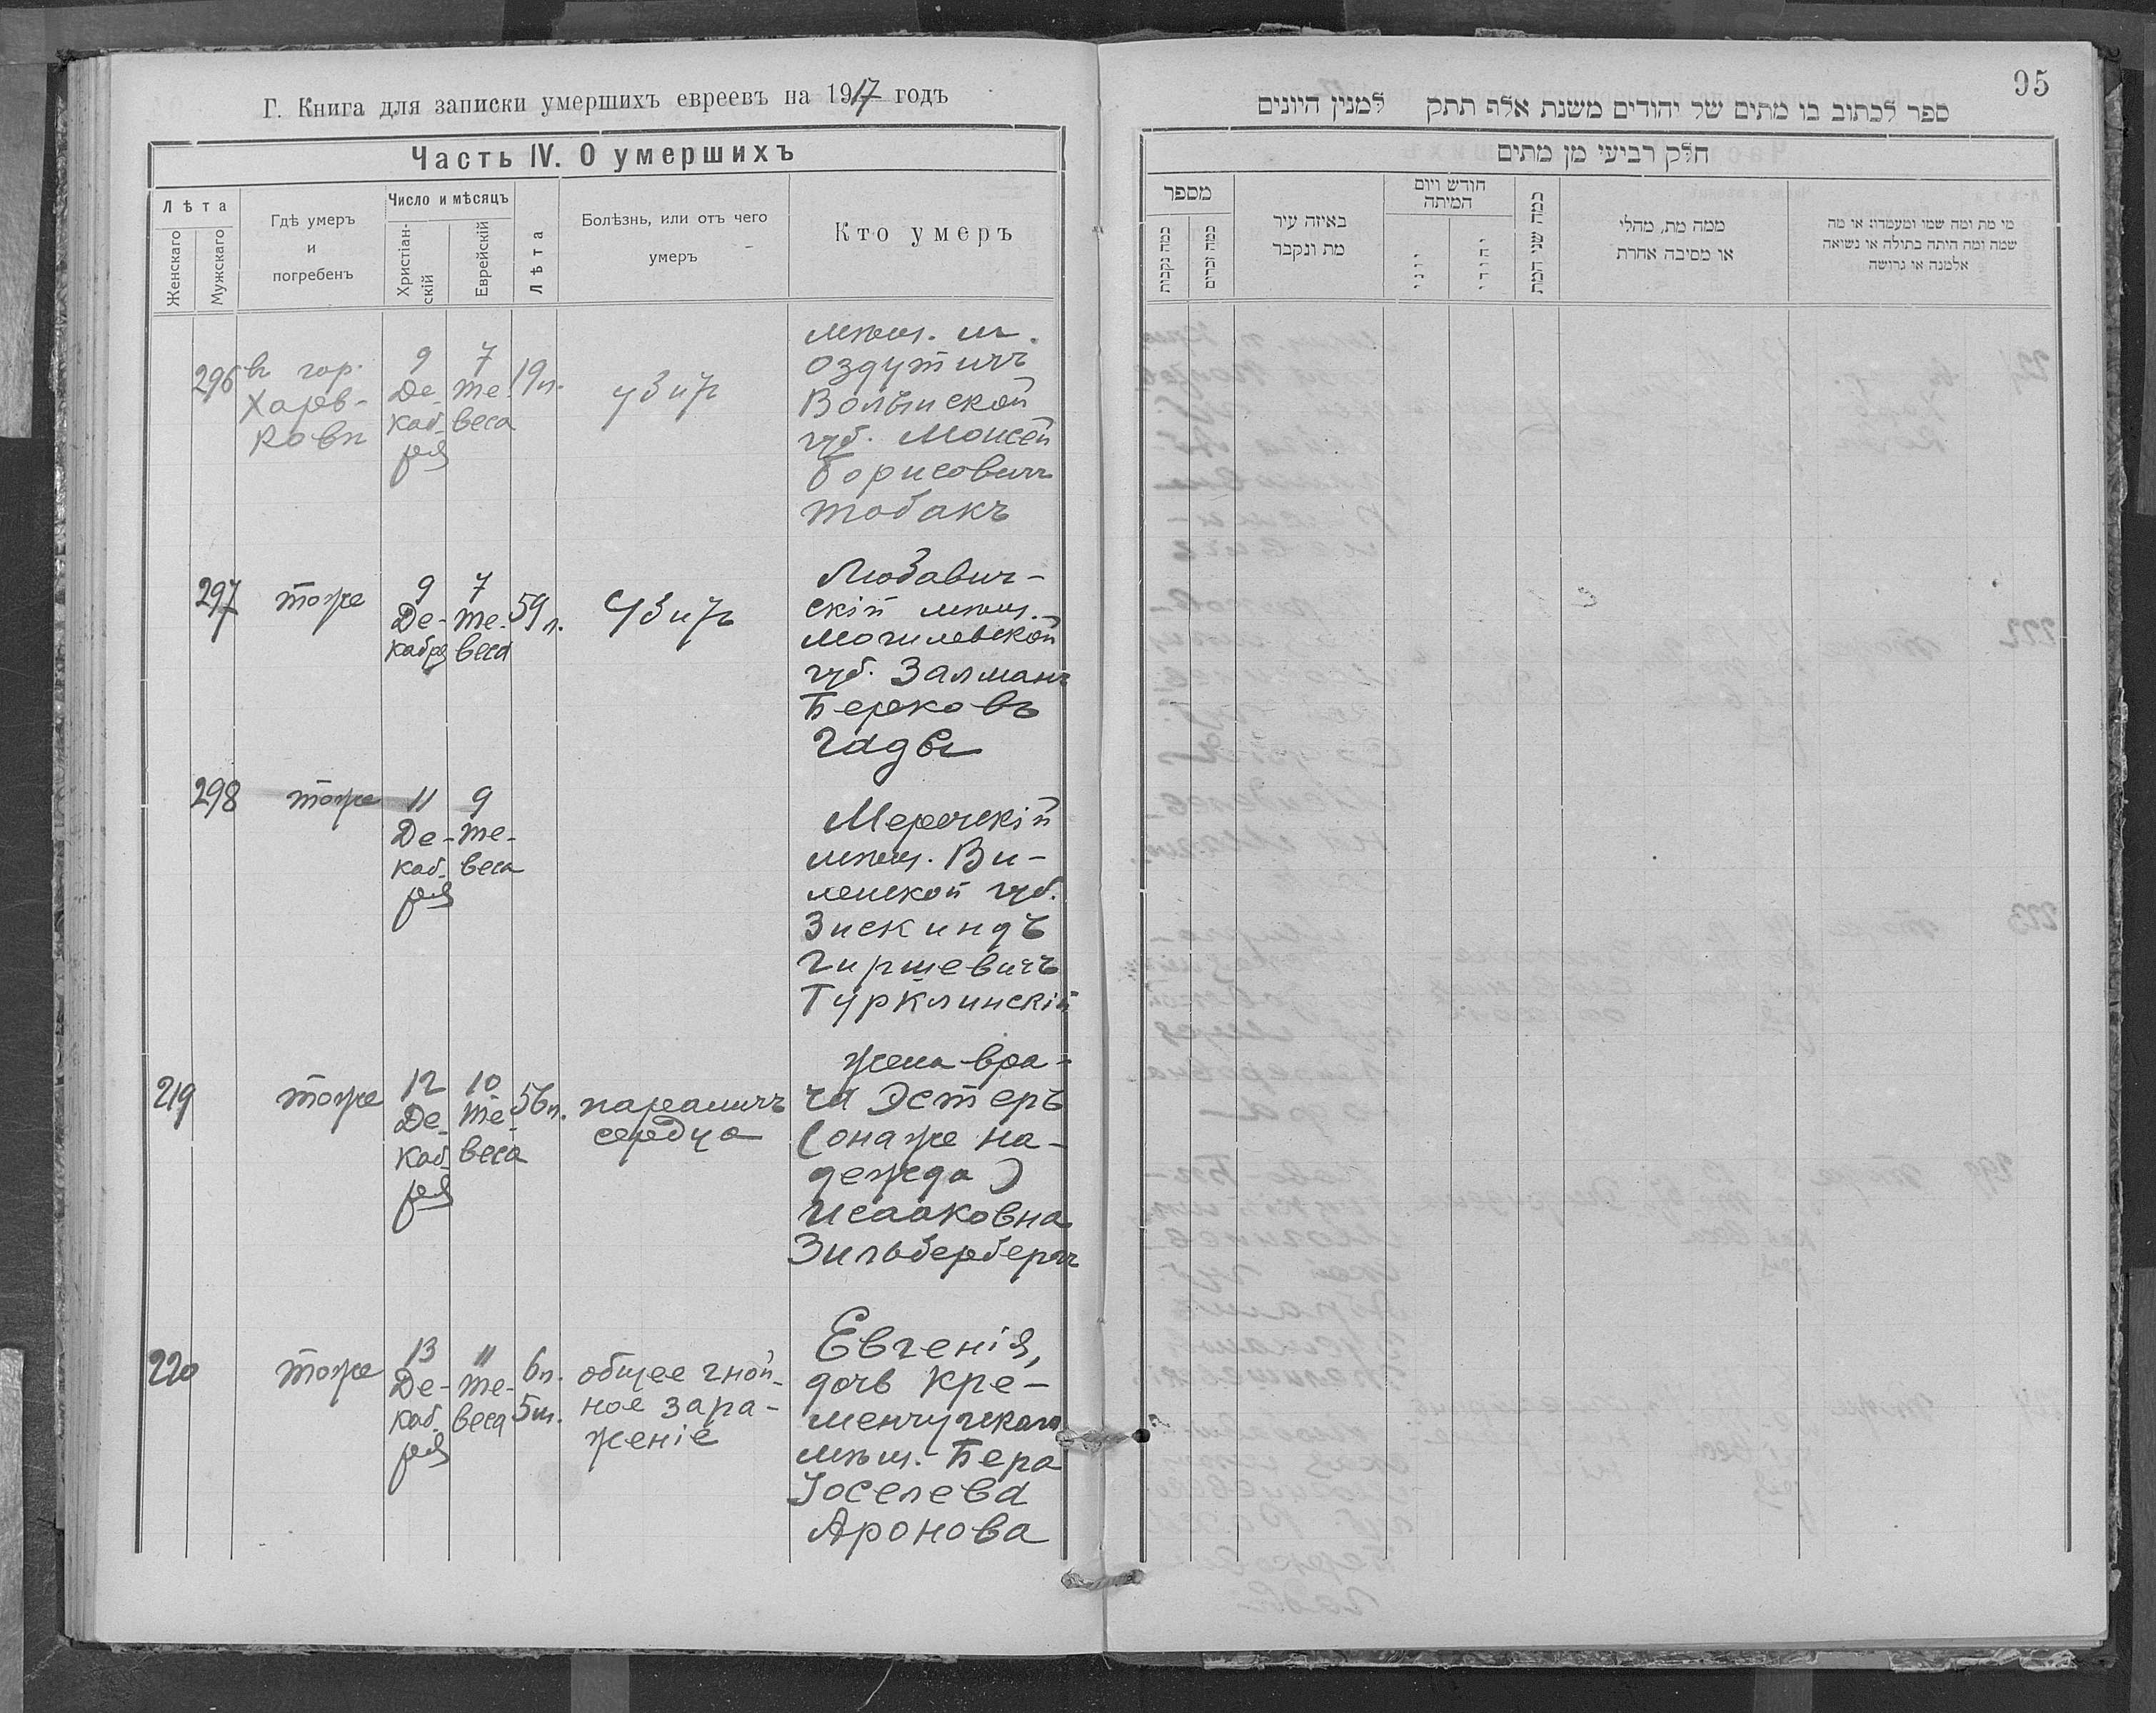 Г. Книга для записки умершихъ евреевъ на 1917 годъ
Часть IV. О умершихъ
Лѣта
Женскаго
Мужскаго
Гдѣ умеръ
и
погребенъ
Число и мѣсяцъ
Христіан-
скій
Еврейскій
Лѣта
Болѣзнь, или отъ чего
умеръ
Кто умеръ
296
въ гор.
Харь-
ковѣ
9
Де-
каб-
ря
7
Те-
веса
19 л.
мѣщ. м.
Волынской
губ. Моисей
Борисовичъ
Тобакъ
297
тоже
9
Де-
кабря
7
Те-
веса
59 л.
Любавич-
скій мѣщ.
Могилевской
губ. Залманъ
Берковъ
298
тоже
11
Де-
каб-
ря
9
Те-
веса
Меречскій
мѣщ. Ви-
ленской губ.
Зискиндъ
Гиршевичъ
Турклинскій
219
тоже
12
Де-
каб-
ря
10
Те-
веса
56 л.
параличъ
сердца
жена вра-
ча Эстеръ
(она же На-
дежда)
Исааковна
Зильбербергъ
220
тоже
13
Де-
каб-
ря
11
Те-
веса
6 л.
5 м.
общее гной-
ное зара-
женіе
Евгенія,
дочь Кре-
менчугскаго
мѣщ. Бера
Іоселева
Аронова
95
ספר לכתוב בו מתים של יהודים משנת אלף תתק למנין היונים
חלק רביעי מן מתים
מספר
כמה נקבות
כמה זכרים
באיזה עיר
מת ונקבר
חודש ויום
המיתה
יוני
יהודי
כמה שני המת
ממה מת, מחלי
או מסיבה אחרת
מי מת ומה שמו ומעמדו: או מה
שמה ומה היתה בתולה או נשואה
אלמנה או גרושה